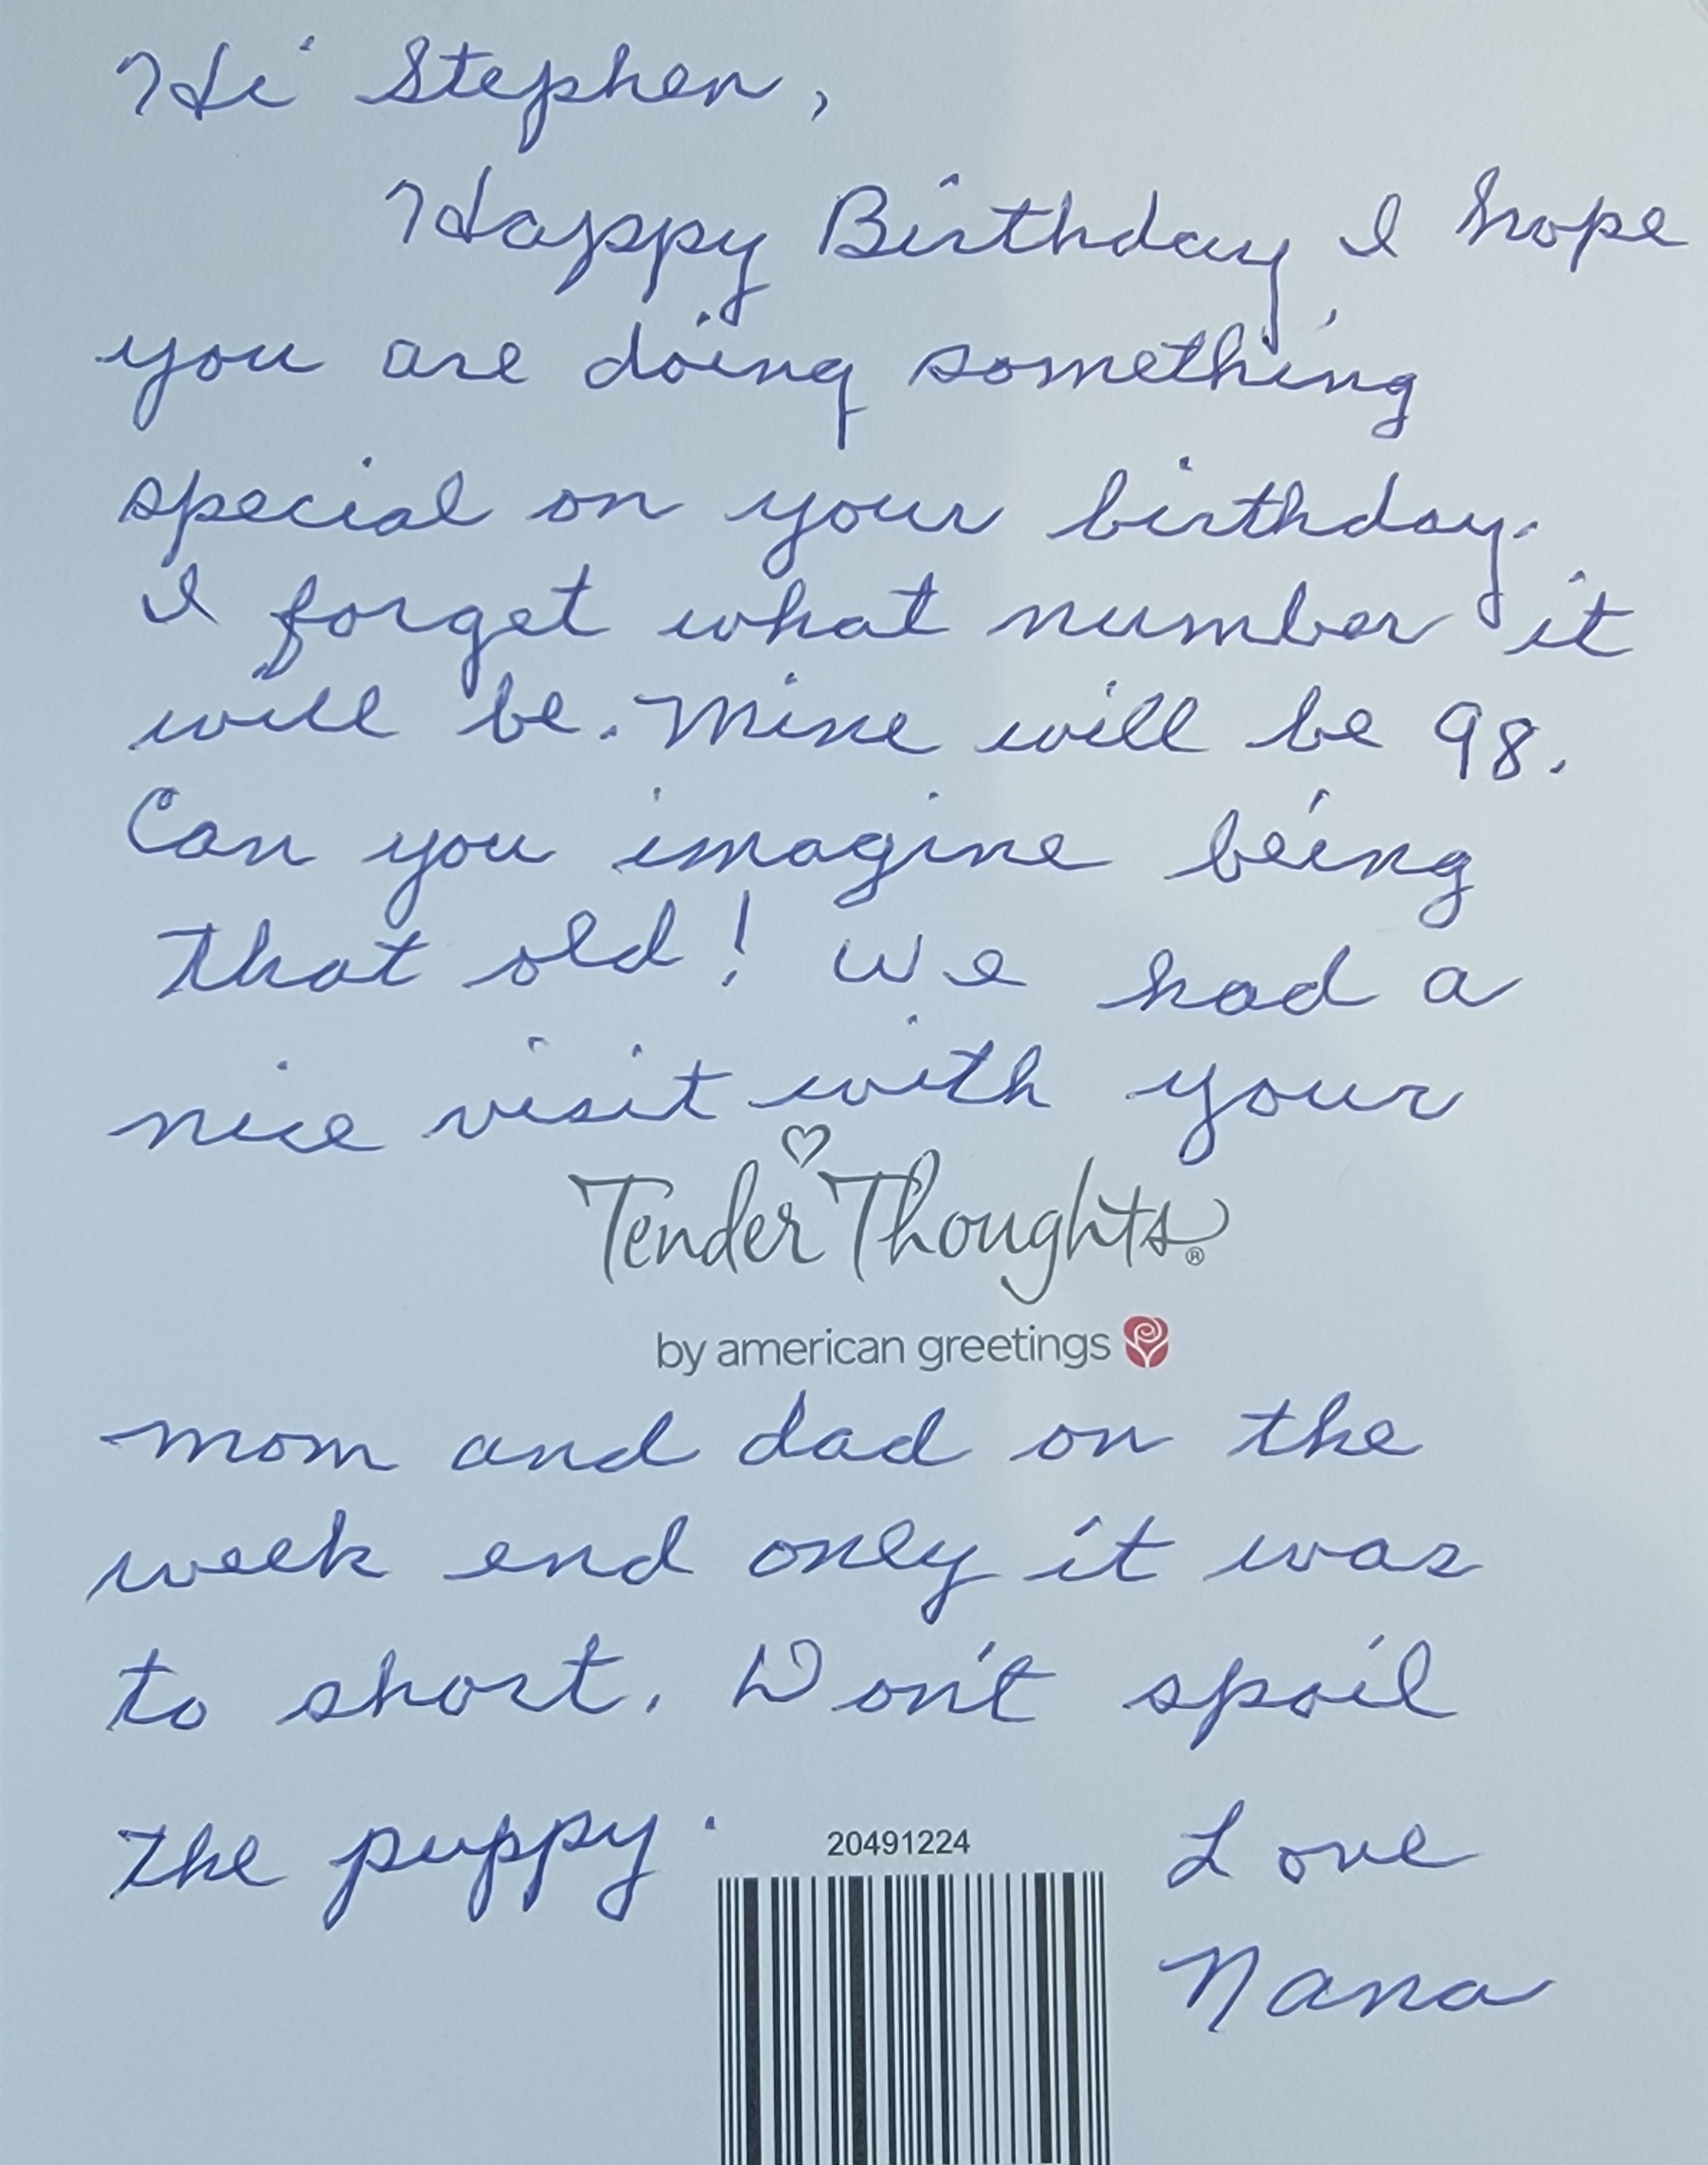 Hi Stephen,
Happy Birthday I hope
you are doing something
special on your birthday.
I forget what number it
will be. Mine will be 98.
Can you imagine being
that old! We had a
nice visit with your
Tender Thoughts®
by american greetings
mom and dad on the
week end only it was
to short. Don't spoil
the puppy.
20491224
Love
Nana